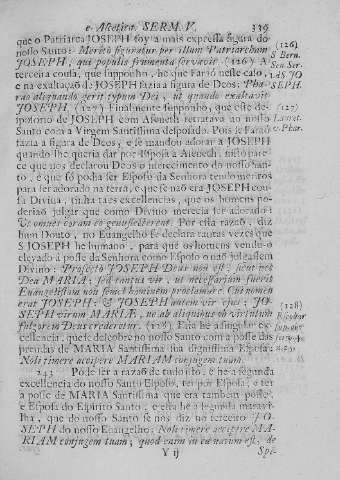 e Ascetica. SERM. V. 339
que o Patriarca JOSEPH foy a mais expressa figura do
nosso Santo: Merito figuratur per illum Patriarcham
JOSEPH, qui populis frumenta servavit (126) A
terceira cousa, que supponho, he que Farió neste caso,
e na exaltaçaõ de JOSEPH fazia a figura de Deos: Pha-
rao aliquando gerit typum Dei, ut quando exaltavit
JOSEPH (127) Finalmente supponho, que este de-
sposorio de JOSEPH com Aseneth retratava ao nosso
Santo com a Virgem Santissima desposado. Pois se Faraó
fazia a figura de Deos, e se mandou adorar a JOSEPH
quando lhe queria dar por Esposa a Aseneth, nisto pare-
ce que nos declarou Deos o merecimento do nosso San-
to, e que só podia ser Esposo da Senhora tendo meritos
para ser adorado na terra, e que se naõ era JOSEPH cou-
sa Divina, tinha taes excellencias, que os homens po-
deriaõ julgar que como Divino merecia ser adorado:
Ut omnes coram eo genuflecterent. Por esta razaõ, diz
hum Douto, no Euangelho se declara tantas vezes que
S JOSEPH he humano, para que os homens vendo-o
elevado á posse da Senhora como Esposo o naõ julgassem
Divino: Profecto JOSEPH Deus non est, sicut nec
Dea MARIA; sed tantus vir, ut necessarium fuerit
Euangelistam non semel hominem proclamare Cui nomen
erat JOSEPH: & JOSEPH autem vir ejus; JO-
SEPH virum MARIÆ, ne ab aliquibus ob virtutum
fulgorem Deus crederetur. (128) Esta he a singular ex-
cellencia, que se descobre no nosso Santo com a posse das
prendas de MARIA Santissima sua dignissima Esposa:
Noli timere accipere MARIAM conjugem tuam.
243 Póde ser a razaõ de tudo isto, e he a segunda
excellencia do nosso Santo Esposo, ter por Esposa, e ter
a posse de MARIA Santissima que era tambem posse,
e Esposa do Espirito Santo, e esta he a segunda maravi-
lha, que do nosso Santo se nos diz no terceiro JO-
SEPH do nosso Euangelho: Noli timere accipere MA-
RIAM conjugem tuam; quod enim in ea natum est, de
Y ij Spi-
(126)
S Bern.
Sen Ser.
1 d S JO
SEPH.
(127)
Lauret.
v. Phar.
(128)
Escobar